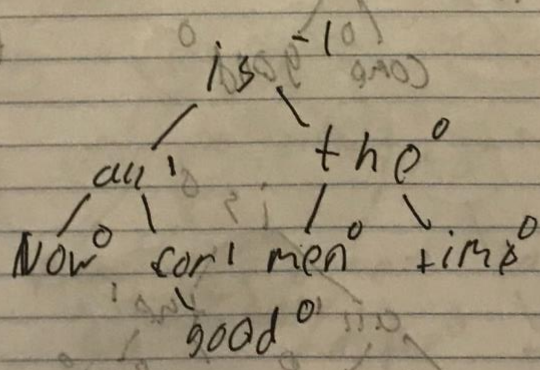 is -1
all 1 the 0
Now 0 for 1 men 0 time 0
good 0